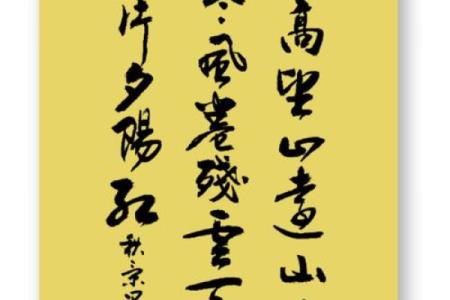 高望山遠山
風卷殘雲
片夕陽紅
秋景